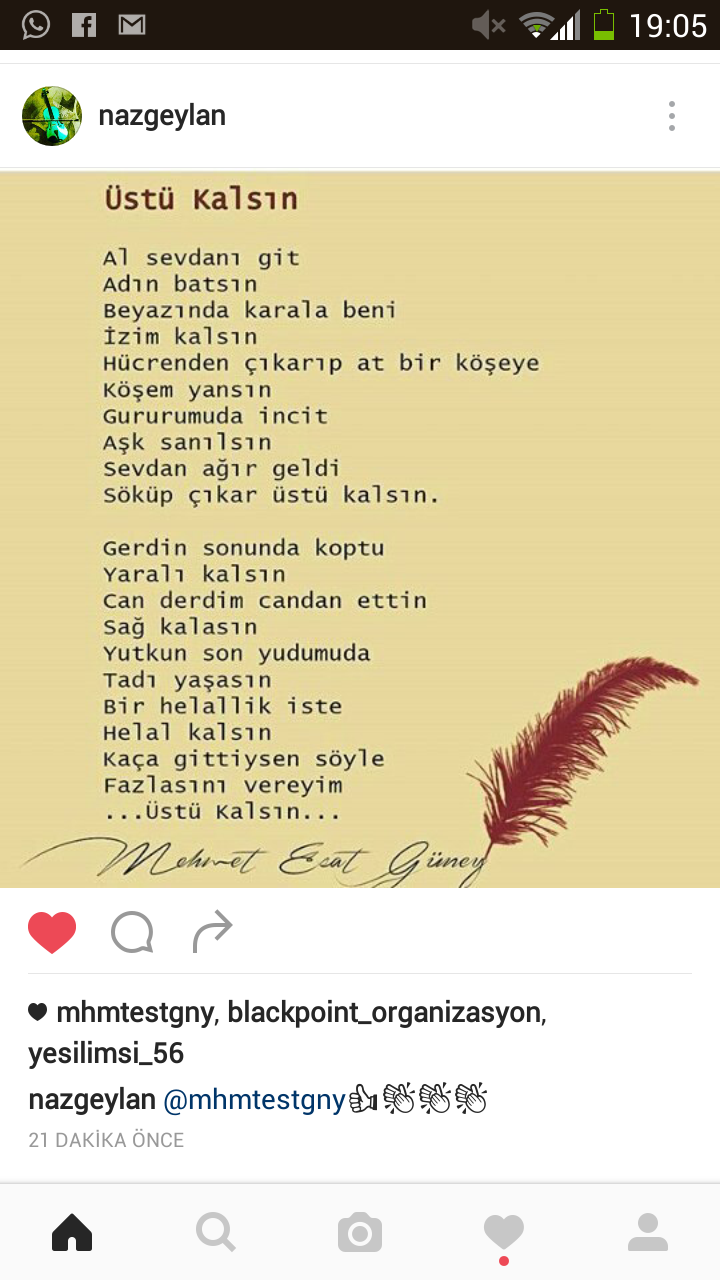 19:05
nazgeylan
Üstü Kalsın
Al sevdanı git
Adın batsın
Beyazında karala beni
İzim kalsın
Hücrenden çıkarıp at bir köşeye
Köşem yansın
Gururumuda incit
Aşk sanılsın
Sevdan ağır geldi
Söküp çıkar üstü kalsın.
Gerdin sonunda koptu
Yaralı kalsın
Can derdim candan ettin
Sağ kalasın
Yutkun son yudumuda
Tadı yaşasın
Bir helallik iste
Helal kalsın
Kaça gittiysen söyle
Fazlasını vereyim
...Üstü Kalsın...
Mehmet Esat Güney
mhmtestgny, blackpoint_organizasyon,
yesilimsi_56
nazgeylan @mhmtestgny👍👏👏👏
21 DAKİKA ÖNCE